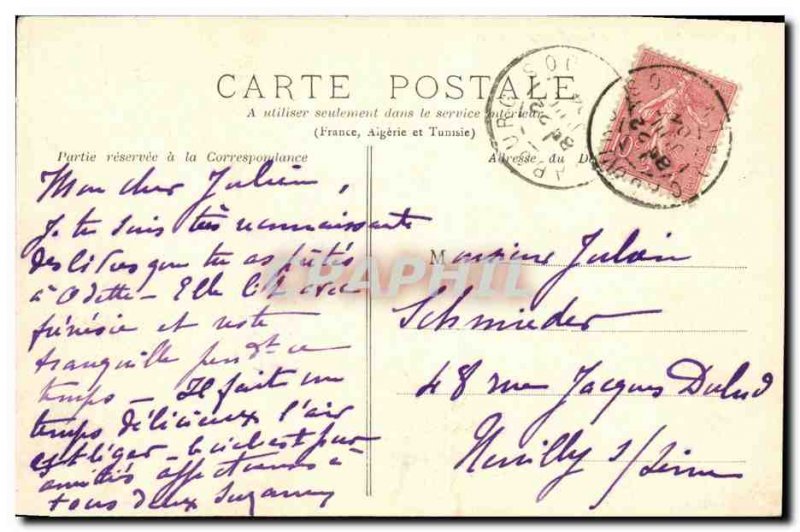 CARTE POSTALE
A utiliser seulement dans le service intérieur
(France, Algérie et Tunisie)
Partie réservée à la Correspondance
Adresse du D
Mon cher Julien,
Je te suis très reconnaissante
des livres que tu as prêtés
à Odette – Elle lit avec
frénésie et reste
tranquille pendt ce
temps – Il fait un
temps délicieux l'air
est léger – le ciel est pur
amitiés affectueuses à
tous deux Suzanne
Monsieur Julien
Schmieder
48 rue Jacques Dulud
Neuilly s/Seine
DELCAPHIL